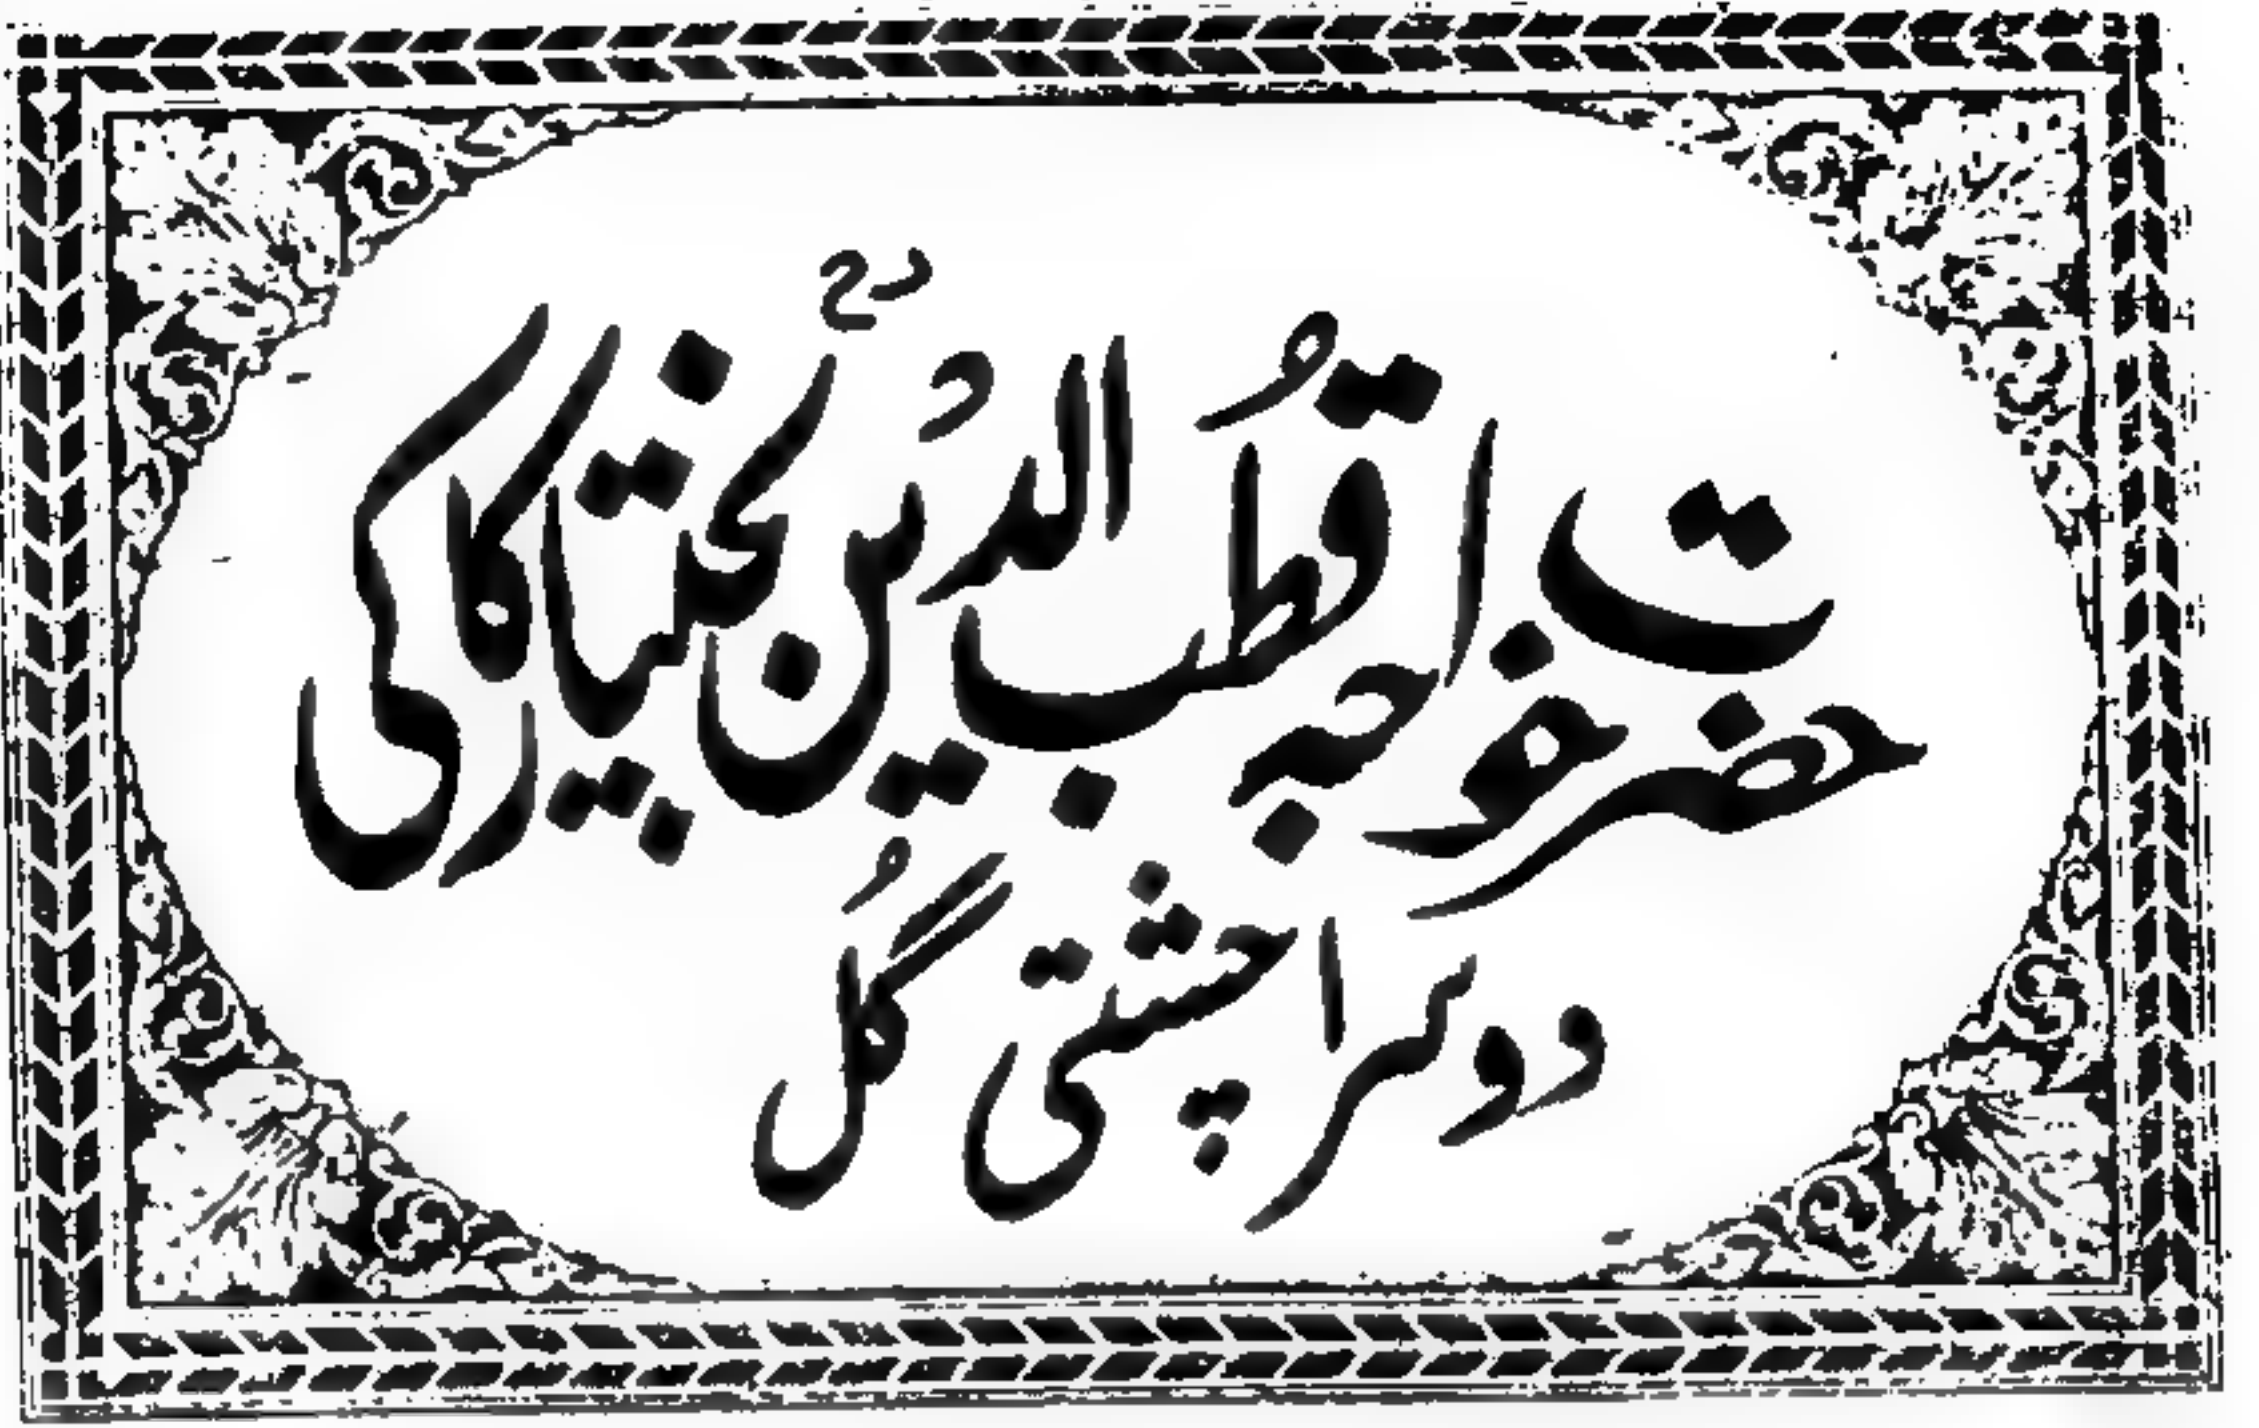 حضرت خواجہ قُطب الدّین بختیار کاکیؒ
دوسرا چشتی گُل